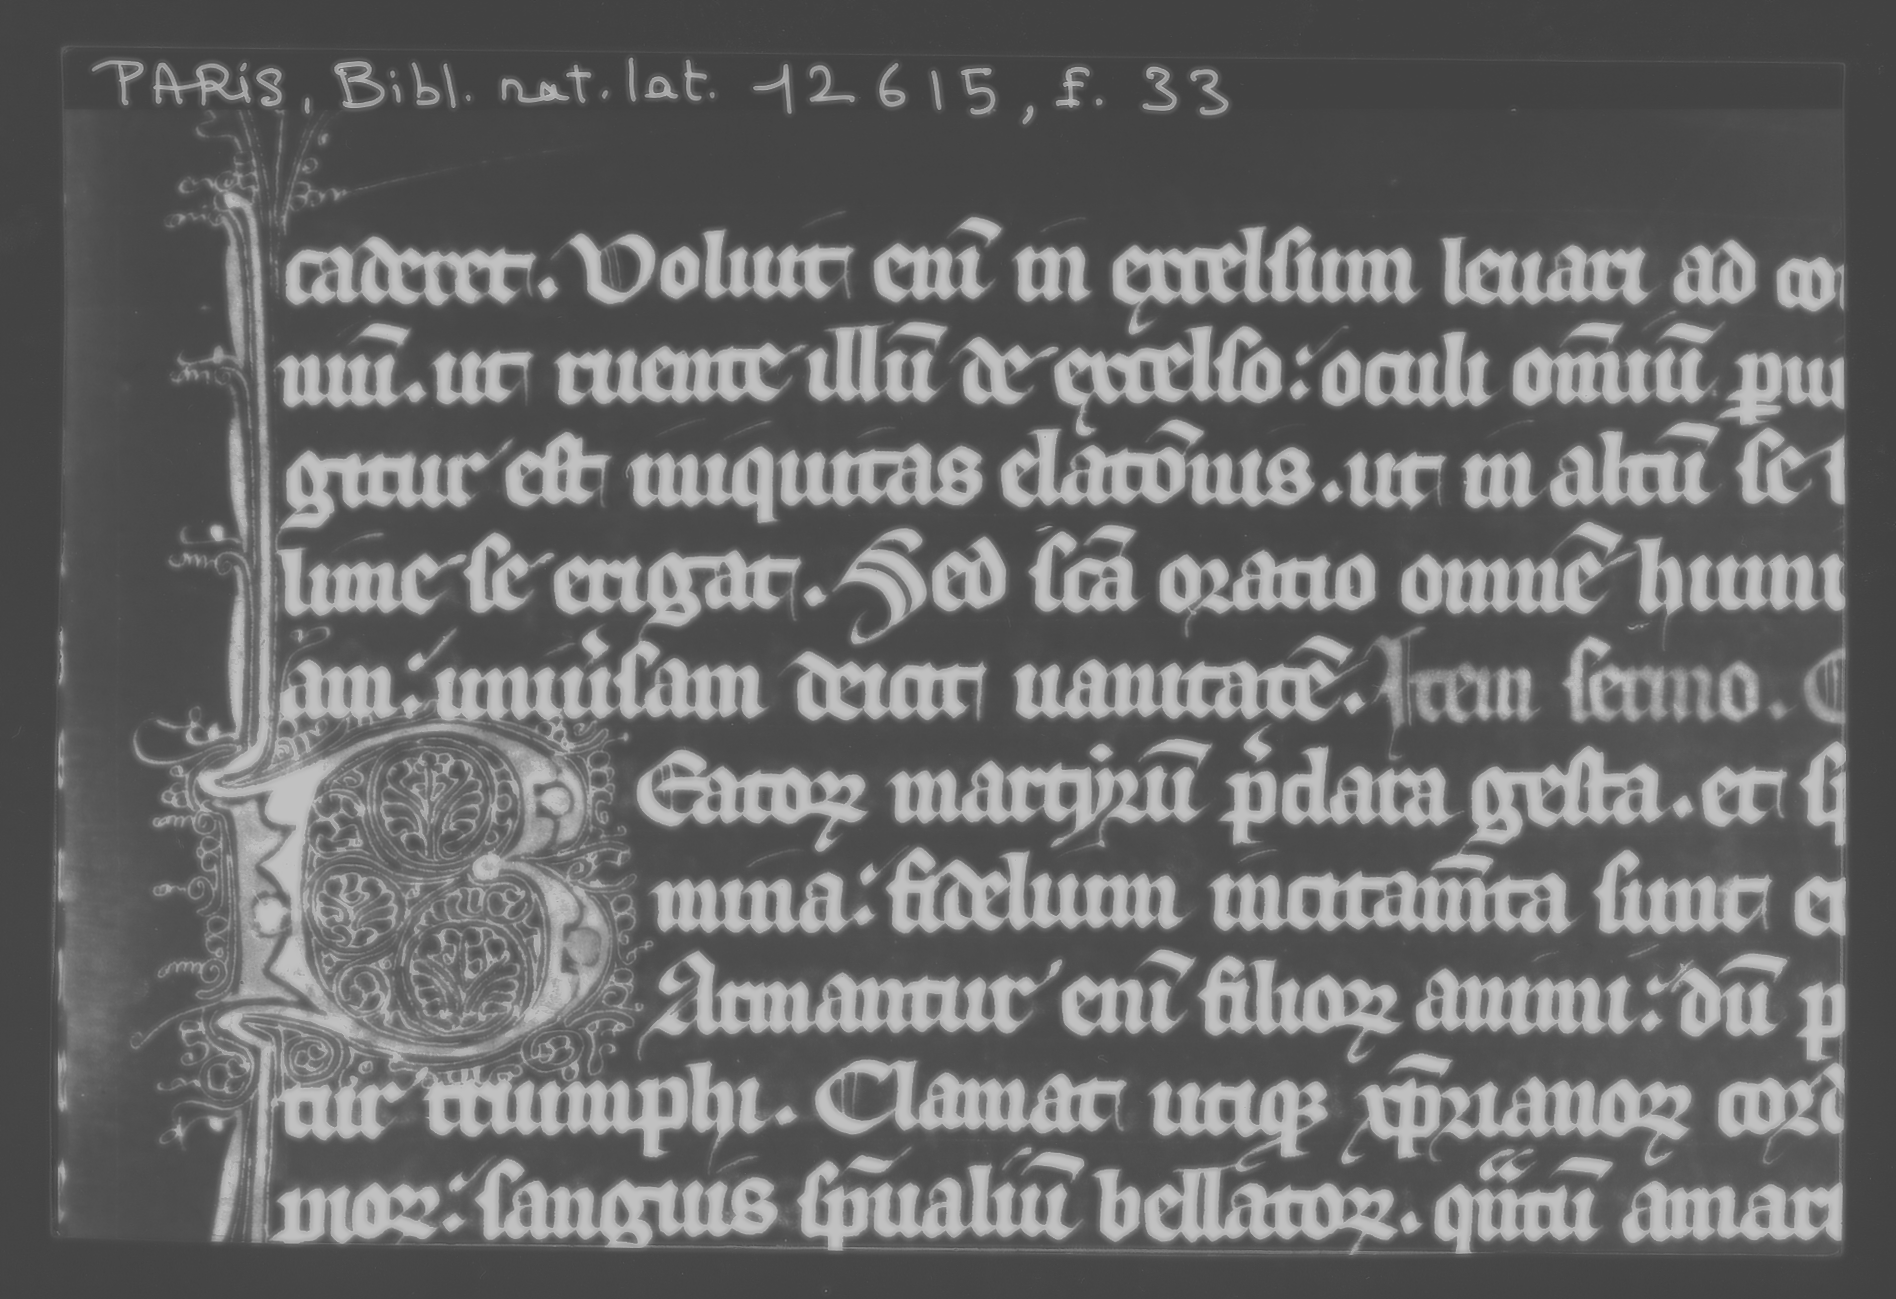 PARIS, Bibl. nat. lat. 12615, f. 33
caderet. Voluit enī in excelsum leuari ad co
niū. ut ruente illū de excelso: oculi om̄iū ꝑui
gitur est iniquitas elatōnis. ut in altū se
lime se erigat. Sed sc̄a oratio omnē humi
am: uniuͥsam deicit uanitatē. Item sermo.
BEatoꝝ martyrū pͥclara gesta. et
mina: fidelium incitam̄ta sunt et
Armantur enī filioꝝ animi: dū p
tur triumphi. Clamat utiqꝫ xp̄rianoꝝ cord
moꝝ: sanguis sp̄ualiū bellatoꝝ. quātū amari